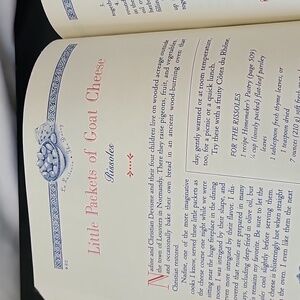 Little Packets of Goat Cheese
Rissoles
Nadine and Christian Devisme and their four children live on wooded acreage outside
the town of Louviers in Normandy. There they raise pigeons, fruit, and vegetables,
and occasionally bake their own bread in an ancient wood-burning oven that
Christian restored.
Nadine, one of the most imaginative
cooks I know, served these little packets as
the cheese course one night while we were
sitting near the big fireplace in the dining
room. I was intrigued by their shape, and
even more intrigued by their flavor. I dis
covered that rissoles are prepared in many
ways, including deep-fried in olive oil, but
remains my favorite. Be sure to let the
cool slightly before serving them,
cheese is blisteringly hot when straight
the oven. I even like them the next
day, gently warmed or at room temperature,
too, for a picnic or a quick lunch.
Try these with a fruity Côtes du Rhône.
FOR THE RISSOLES
1 recipe Homemaker's Pastry (page 509)
cup (loosely packed) flat-leaf parsley
leaves
1 tablespoon fresh thyme leaves, or
1 teaspoon dried
7 ounces (210 g) soft